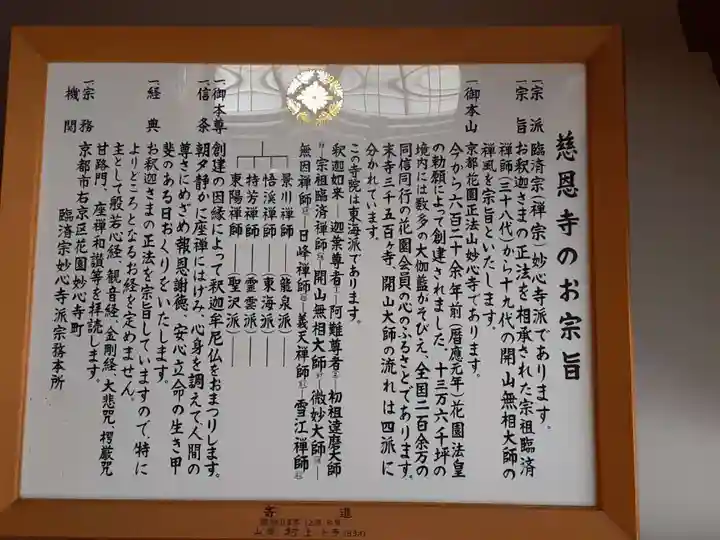 慈恩寺のお宗旨
一、宗派 臨済宗(禅宗)妙心寺派であります。
一、宗旨 お釈迦さまの正法を相承された宗祖臨済
禅師(三十八代)から十九代の開山無相大師の
禅風を宗旨といたします。
一、御本山 京都花園正法山妙心寺であります。
今から六百二十余年前(暦應元年)花園法皇
の勅願によって創建されました、十三万六千坪の
境内には数多の大伽藍がそびえ、全国二百余万の
同信同行の花園会員の心のふるさとであります。
末寺三千五百ヶ寺、開山大師の流れは四派に
分かれています。
この寺院は東海派であります。
釈迦如来―迦葉尊者―阿難尊者―初祖達磨大師
―宗祖臨済禅師―開山無相大師―微妙大師―
無因禅師―日峰禅師―義天禅師―雪江禅師
景川禅師―(龍泉派)―
悟溪禅師―(東海派)―
特芳禅師―(霊雲派)―
東陽禅師―(聖沢派)―
一、御本尊 創建の因縁によって釈迦牟尼仏をおまつりします。
一、信条 朝夕静かに座禅にはげみ、心身を調えて、人間の
尊さにめざめ報恩謝徳、安心立命の生き甲
斐のある日おくりをいたします。
一、経典 お釈迦さまの正法を宗旨としていますので、特に
よりどころとなるお経を定めません。
主として般若心経、観音経、金剛経、大悲咒、楞厳咒
甘路門、座禅和讃等を拝読します。
一、宗務機関 京都市右京区花園妙心寺町
臨済宗妙心寺派宗務本所
寄進
村上